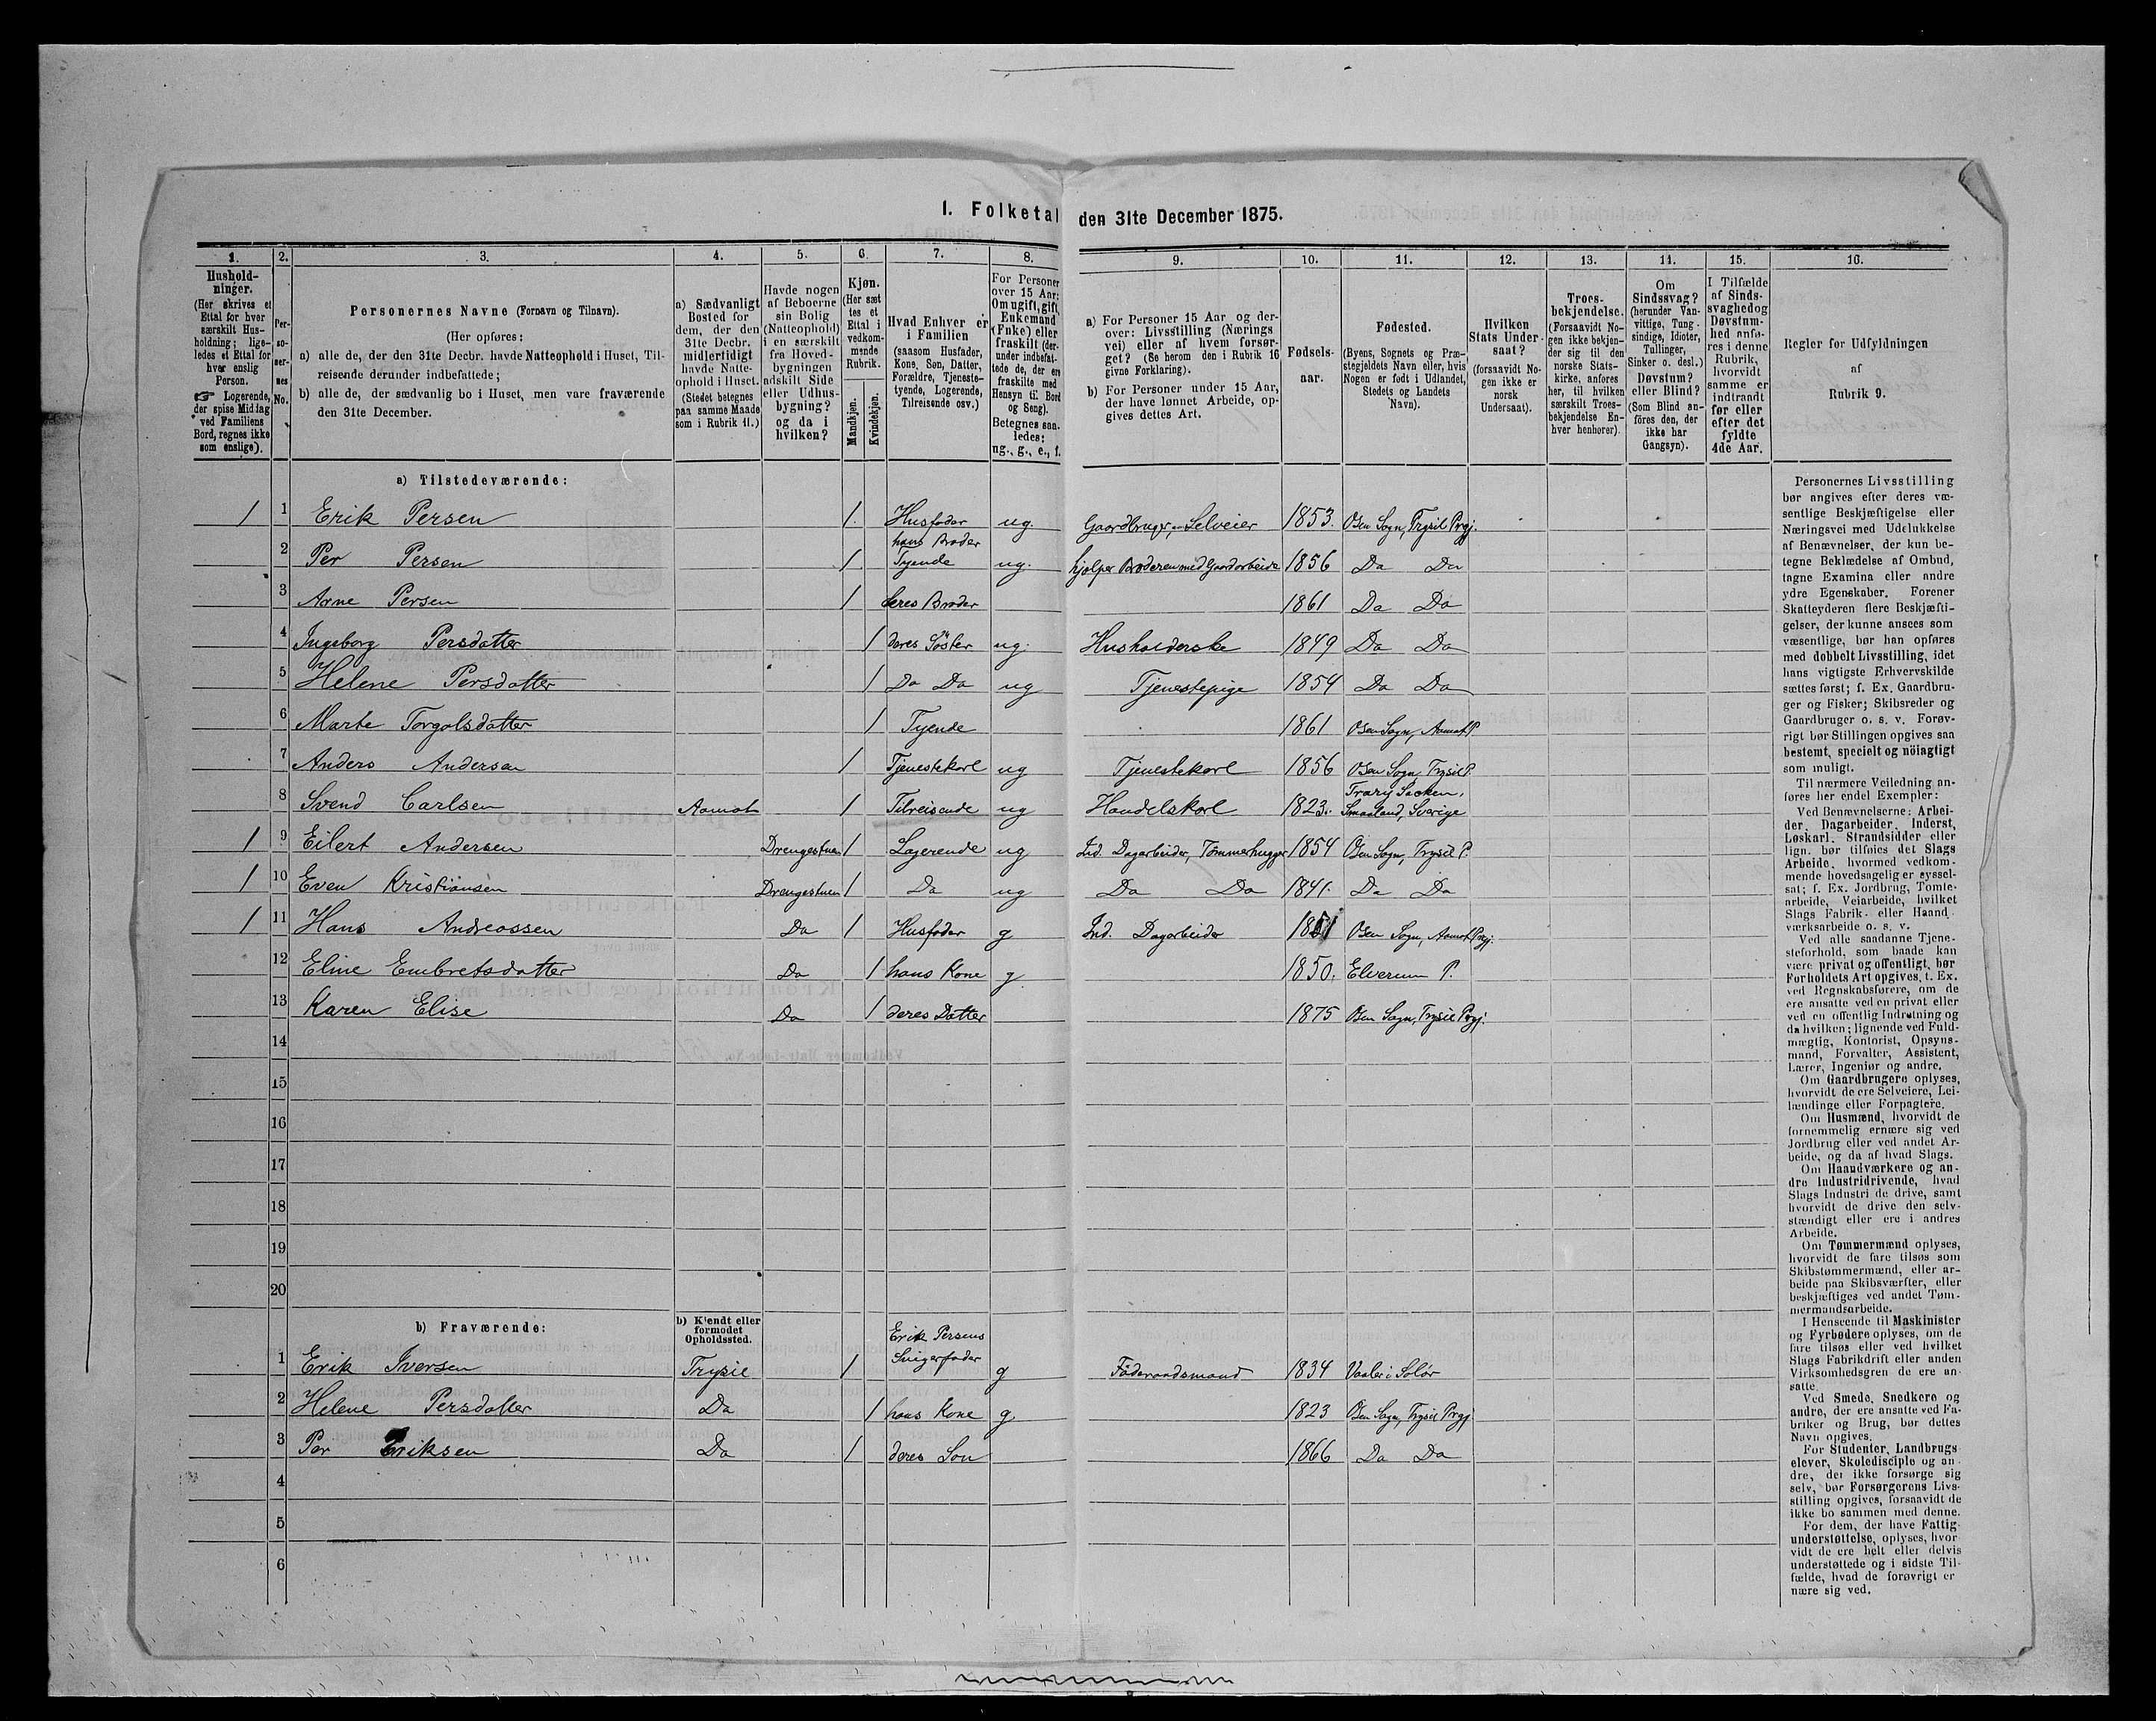 1. Folketal den 31te December 1875.
1. 2. 3. 4. 5. 6. 7. 8. 9. 10. 11. 12. 13. 14. 15. 16.
Hushold-
ninger.
(Her skrives et
Ettal for hver
særskilt Hus-
holdning; lige-
ledes et Ettal for
hver enslig
Person.
☞ Logerende,
der spise Middag
ved Familiens
Bord, regnes ikke
som enslige).
Per-
so-
ner-
nes
No.
Personernes Navne (Fornavn og Tilnavn).
(Her opføres:
a) alle de, der den 31te Decbr. havde Natteophold i Huset, Til-
reisende derunder indbefattede;
b) alle de, der sædvanlig bo i Huset, men vare fraværende
den 31te December.
a) Sædvanligt
Bosted for
dem, der den
31te Decbr.
midlertidigt
havde Natte-
ophold i Huset.
(Stedet betegnes
paa samme Maade
som i Rubrik 11.)
Havde nogen
af Beboerne
sin Bolig
(Natteophold)
i en særskilt
fra Hoved-
bygningen
adskilt Side
eller Udhus-
bygning?
og da i
hvilken?
Kjøn.
(Her sæt
tes et
Ettal i
vedkom-
mende
Rubrik.
Mandkjøn.
Kvindekjøn.
Hvad Enhver er
i Familien
(saasom Husfader,
Kone, Søn, Datter,
Forældre, Tjeneste-
tyende, Logerende,
Tilreisende osv.)
For Personer
over 15 Aar:
Om ugift, gift,
Enkemand
(Enke) eller
fraskilt (der-
under indbefat-
tede de, der ere
fraskilte med
Hensyn til Bord
og Seng).
Betegnes saa-
ledes:
ug., g., e., f.
a) For Personer 15 Aar og der-
over: Livsstilling (Nærings
vei) eller af hvem forsør-
get? (Se herom den i Rubrik 16
givne Forklaring).
b) For Personer under 15 Aar,
der have lønnet Arbeide, op-
gives dettes Art.
Fødsels-
aar.
Fødested.
(Byens, Sognets og Præ-
stegjeldets Navn eller, hvis
Nogen er født i Udlandet,
Stedets og Landets
Navn).
Hvilken
Stats Under-
saat?
(forsaavidt No-
gen ikke er
norsk
Undersaat).
Troes-
bekjendelse.
(Forsaavidt No-
gen ikke bekjen-
der sig til den
norske Stats-
kirke, anføres
her, til hvilken
særskilt Troes-
bekjendelse En-
hver henhører).
Om
Sindssvag?
(herunder Van-
vittige, Tung-
sindige, Idioter,
Tullinger,
Sinker o. desl.)
Døvstum?
eller Blind?
(Som Blind an-
føres den, der
ikke har
Gangsyn).
I Tilfælde
af Sinds-
svaghed og
Døvstum-
hed anfø-
res i denne
Rubrik,
hvorvidt
samme er
indtraadt
før eller
efter det
fyldte
4de Aar.
Regler for Udfyldningen
af
Rubrik 9.
a) Tilstedeværende:
1 1 Erik Persen 1. Husfader ug. Gaardbruger, Selveier 1853. Osen Sogn, Trysil Prgj.
2 Per Persen 1 hans Broder Tyende ug. hjelper Broderen med Gaardarbeide 1856 Do Do
3 Arne Persen 1 deres Broder 1861 Do Do
4 Ingeborg Persdatter 1 deres Söster ug. Husholderske 1849 Do Do
5 Helene Persdatter 1 Do Do ug Tjenestepige 1854 Do Do
6 Marte Torgalsdatter 1 Tyende 1861 Osen Sogn, Aamot P.
7 Anders Andersen 1 Tjenestekarl ug Tjenestekarl 1856 Osen Sogn, Trysil P.
8 Svend Carlsen Aamot 1 Tilreisende ug Handelskarl 1823. Smaaland, Sverige
1 9 Eilert Andersen Drengestuen 1 Logerende ug Ind. Dagarbeider, Tømmerhugger 1854 Osen Sogn, Trysil P.
1 10 Even Kristiansen Drengestuen 1 Do ug Do Do 1841. Do Do
1 11 Hans Andreassen Do 1 Husfader g Ind. Dagarbeider 1851 Osen Sogn, Aamot Prgj.
12 Eline Embretsdatter Do 1 hans Kone g 1850. Elverum P.
13 Karen Elise Do 1 deres Datter 1875 Osen Sogn, Trysil Prgj.
14
15
16
17
18
19
20
b) Fraværende:
b) Kjendt eller
formodet
Opholdssted.
1 Erik Iversen Trysil 1 Erik Persens Svigerfader g Föderaadsmand 1834 Vaaler i Solör
2 Helene Persdatter Do 1 hans Kone g 1823 Osen Sogn, Trysil Prgj.
3 Per Eriksen Do 1 deres Son 1866 Do Do
4
5
6
Personernes Livsstilling
bør angives efter deres væ-
sentlige Beskjæftigelse eller
Næringsvei med Udelukkelse
af Benævnelser, der kun be-
tegne Beklædelse af Ombud,
tagne Examina eller andre
ydre Egenskaber. Forener
Skatteyderen flere Beskjæfti-
gelser, der kunne ansees som
væsentlige, bør han opføres
med dobbelt Livsstilling, idet
hans vigtigste Erhvervskilde
sættes først; f. Ex. Gaardbru-
ger og Fisker; Skibsreder og
Gaardbruger o. s. v. Forøv-
rigt bør Stillingen opgives saa
bestemt, specielt og nöiagtigt
som muligt.
Til nærmere Veiledning an-
føres her endel Exempler:
Ved Benævnelserne: Arbei-
der, Dagarbeider, Inderst,
Løskarl, Strandsidder eller
lign. bør tilføies det Slags
Arbeide, hvormed vedkom-
mende hovedsagelig er syssel-
sat; f. Ex. Jordbrug, Tomte-
arbeide, Veiarbeide, hvilket
Slags Fabrik- eller Haand-
værksarbeide o. s. v.
Ved alle saadanne Tjene-
steforhold, som baade kan
være privat og offentligt, bør
Forholdets Art opgives, t. Ex.
ved Regnskabsførere, om de
ere ansatte ved en privat eller
ved en offentlig Indretning og
da hvilken; lignende ved Fuld-
mægtig, Kontorist, Opsyns-
mand, Forvalter, Assistent,
Lærer, Ingeniør og andre.
Om Gaardbrugere oplyses,
hvorvidt de ere Selveiere, Lei-
lændinge eller Forpagtere.
Om Husmænd, hvorvidt de
fornemmelig ernære sig ved
Jordbrug eller ved andet Ar-
beide, og da af hvad Slags.
Om Haandværkere og an-
dre Industridrivende, hvad
Slags Industri de drive, samt
hvorvidt de drive den selv-
stændigt eller ere i andres
Arbeide.
Om Tømmermænd oplyses,
hvorvidt de fare tilsøs som
Skibstømmermænd, eller ar-
beide paa Skibsværfter, eller
beskjæftiges ved andet Tøm-
mermandsarbeide.
I Henseende til Maskinister
og Fyrbødere oplyses, om de
fare tilsøs eller ved hvilket
Slags Fabrikdrift eller anden
Virksomhedsgren de ere an-
satte.
Ved Smede, Snedkere og
andre, der ere ansatte ved Fa-
briker og Brug, bør dettes
Navn opgives.
For Studenter, Landbrugs
elever, Skoledisciple og an-
dre, der ikke forsørge sig
selv, bør Forsørgerens Livs-
stilling opgives, forsaavidt de
ikke bo sammen med denne.
For dem, der have Fattig-
understøttelse, oplyses, hvor-
vidt de ere helt eller delvis
understøttede og i sidste Til-
fælde, hvad de forøvrigt er
nære sig ved.